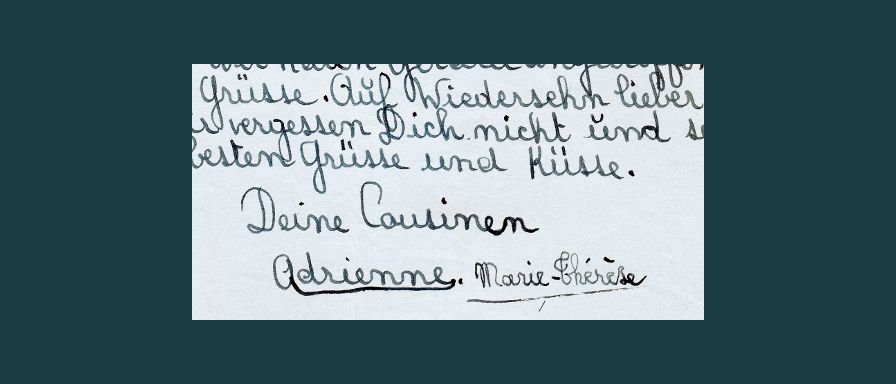 Grüsse. Auf Wiedersehn lieber
vergessen Dich nicht und
besten Grüsse und Küsse.
Deine Cousinen
Adrienne. Marie-Thérèse